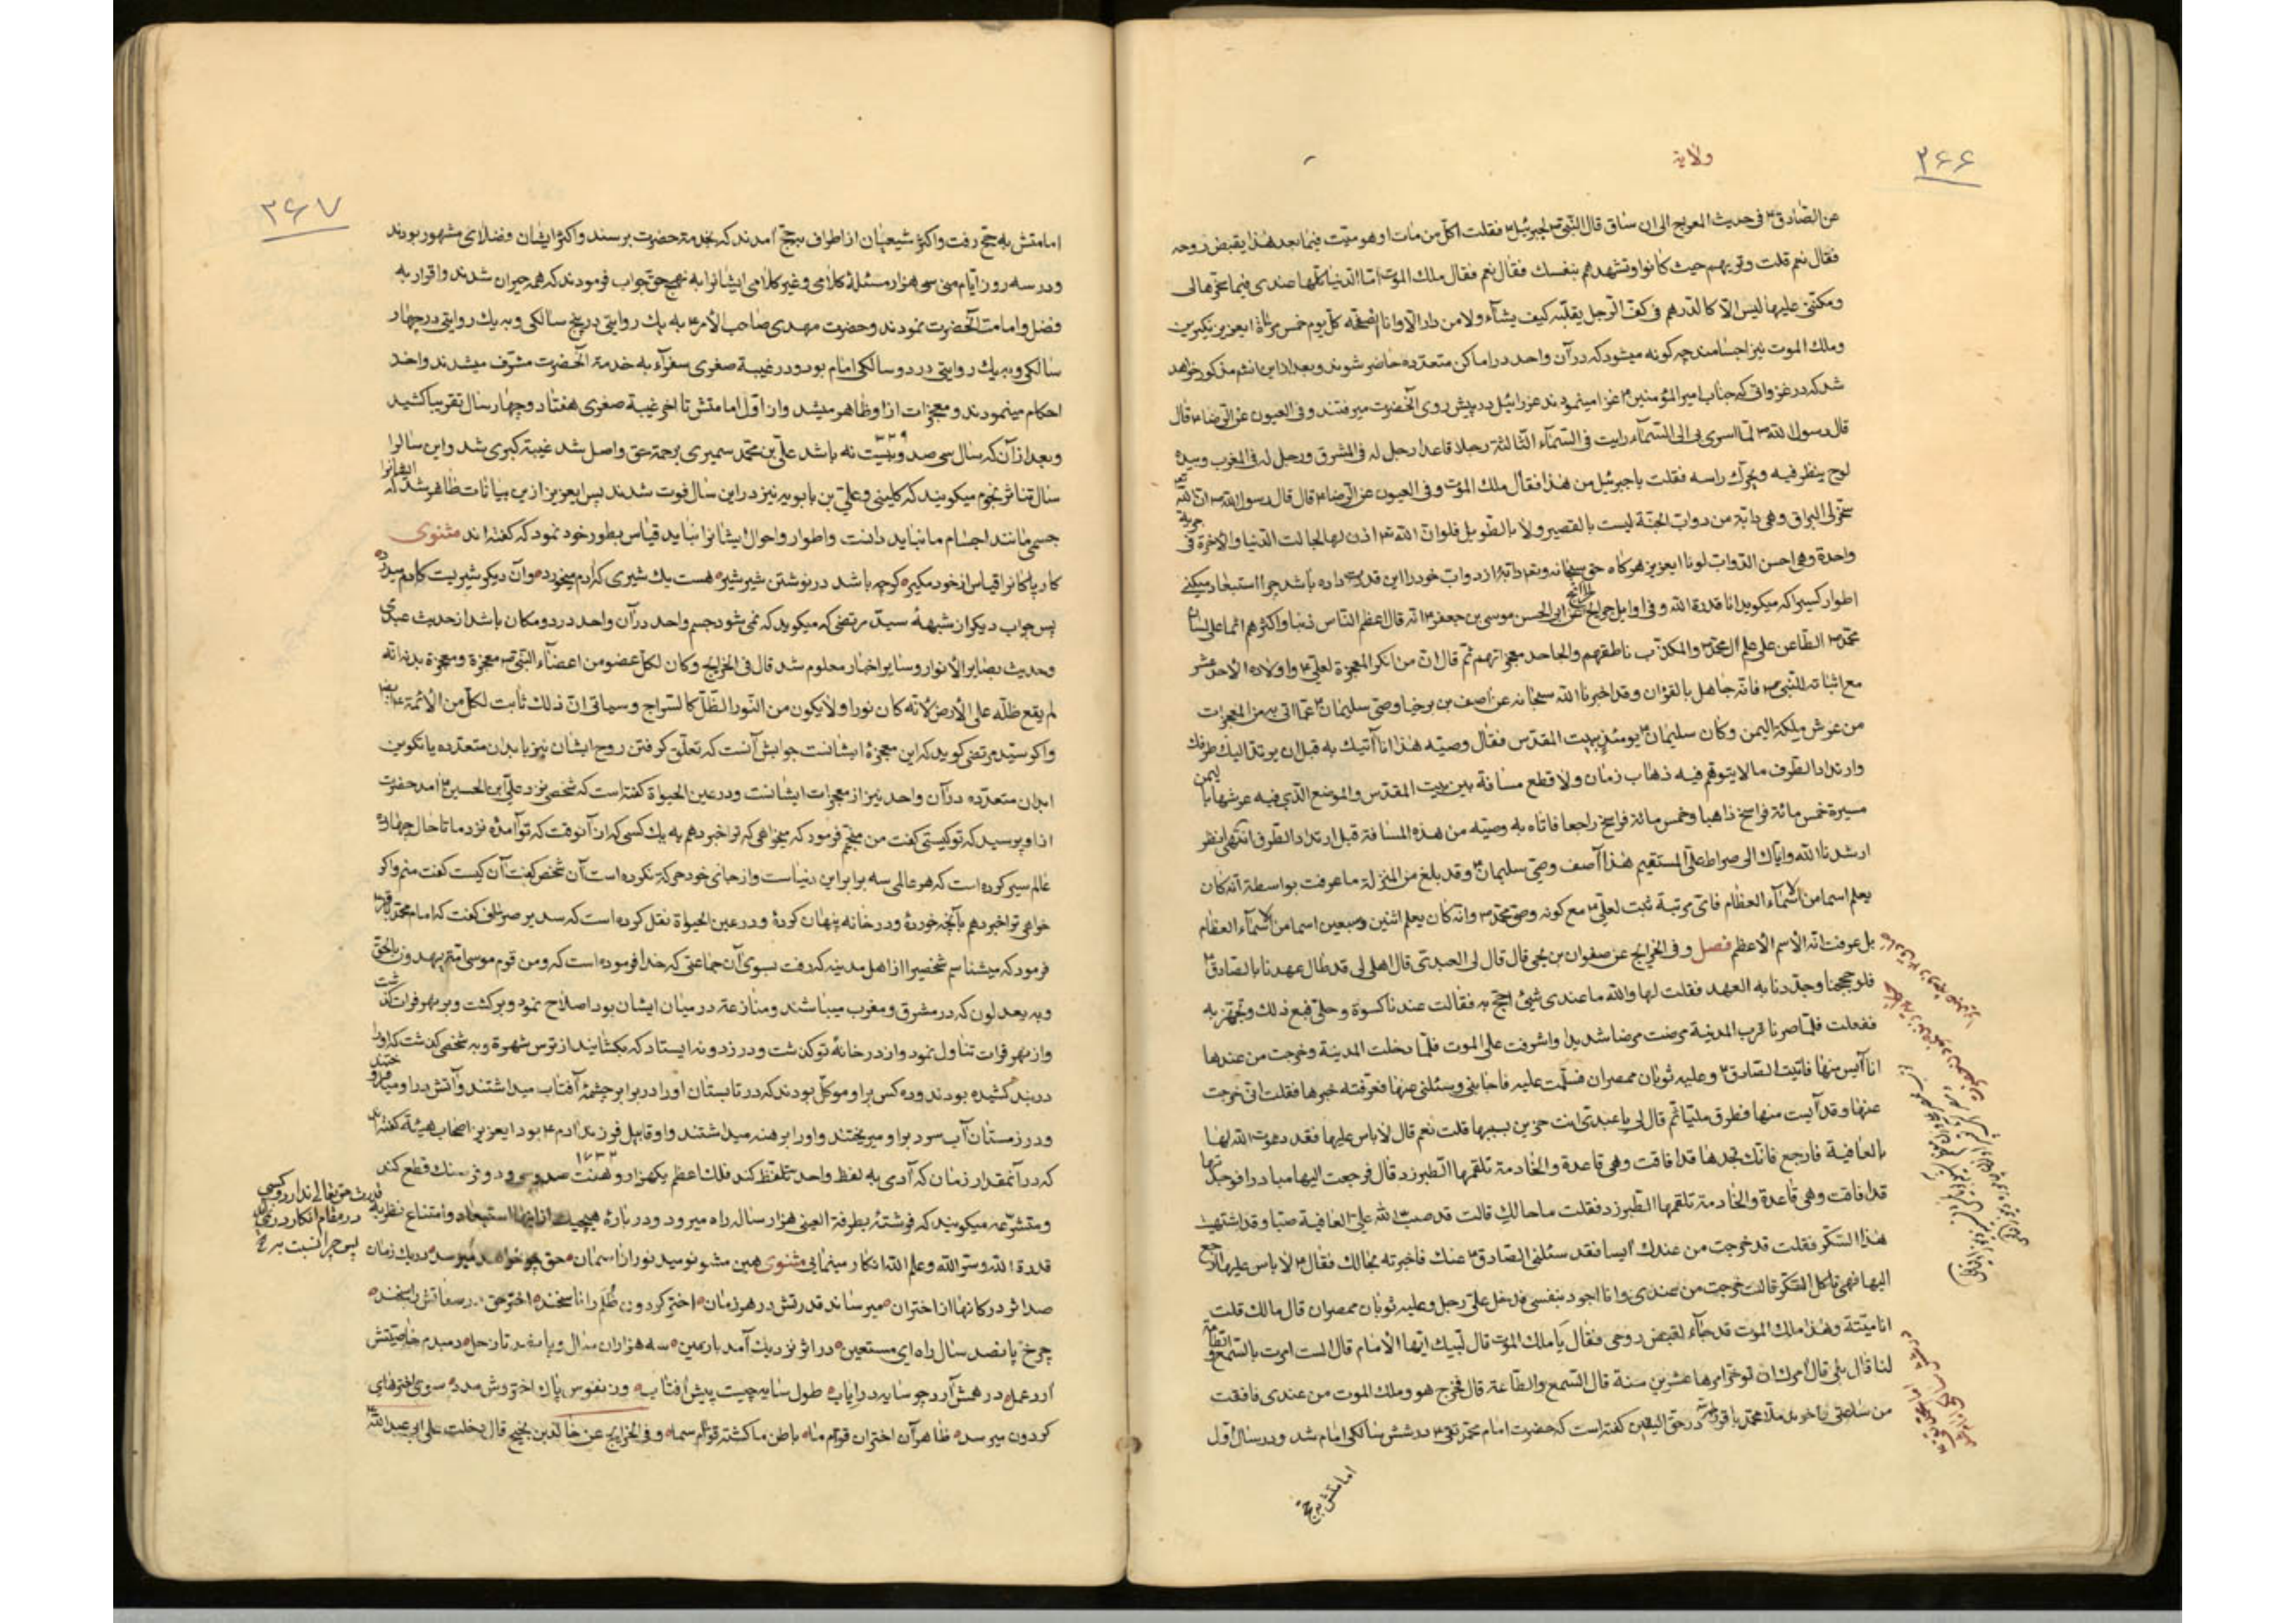 ۲۶۶
ولایة
عن الصادق ع فی حدیث المعراج الی ان ساق قال النبی ص لجبرئیل ع فقلت اکل من مات او هو میت فیما بعد هذا یقبض روحه
فقال نعم قلت وتریهم حیث کانوا وتشهدهم بنفسک فقال نعم فقال ملک الموت ما الدنیا کلها عندی فیما سخرها لی
ومکننی علیها لیس الا کالدرهم فی کف الرجل یقلبه کیف یشاء ولا من دار الا وانا اتصفحه کل یوم خمس مرات ایعزیز نکیرین
وملک الموت نیز اجسامند چه کونه میشود که در آن واحد در اماکن متعدده حاضر شوند وبعد از این انشم مذکور خواهد
شد که در غزواتی که جناب امیر المؤمنین ع غزا مینمودند عزرائیل در پیش روی آنحضرت میرفتند وفی العیون عن الرضا ع قال
قال رسول الله ص لما اسری بی الی السماء رایت فی السماء الثالثة رجلا قاعدا رجل له فی المشرق ورجل له فی المغرب وبیده
لوح ینظر فیه ویحرک راسه فقلت یا جبرئیل من هذا فقال ملک الموت وفی العیون عن الرضا ع قال قال رسول الله ص ان الله
سخر لی البراق وهی دابة من دواب الجنة لیست بالقصیر ولا بالطویل فلو ان الله تع اذن لها لجالت الدنیا والاخرة فی جریة
واحدة وهی احسن الدواب لونا ایعزیز هرکاه حق سبحانه وتع دابة از دواب خود را این قدرت داده باشد چرا استبعاد میکنی
اطوار کسیرا که میکوید انا قدرة الله وفی اوایل جرایح الخرایج عن ابی الحسن موسی بن جعفر ع انه قال اعظم الناس ذنبا واکثرهم اثما علی لسان
محمد ص الطاعن علی علم آل محمد ص والمکذب ناطقهم والجاحد معجزاتهم ثم قال ان من انکر المعجزة لعلی ع واولاده الاحد عشر
مع اثباته للنبی ص فانه جاهل بالقرآن وقد اخبرنا الله سبحانه عن اصف بن برخیا وصی سلیمان ع عما اتی به من المعجزات
من عرش ملکة الیمن وکان سلیمان ع یومئذ ببیت المقدس فقال وصیه هذا انا آتیک به قبل ان یرتد الیک طرفک
وارتداد الطرف ما لا یتوهم فیه ذهاب زمان ولا قطع مسافة بین بیت المقدس والموضع الذی فیه عرشها بالیمن
مسیرة خمس مائة فراسخ ذاهبا وخمس مائة فراسخ راجعا فاتاه به وصیه من هذه المسافة قبل ارتداد الطرف انتهی بنظر
ارشدنا الله وایاک الی صراط علی المستقیم هذا آصف وصی سلیمان ع وقد بلغ من المنزلة ما عرفت بواسطة انه کان
یعلم اسما من الاسماء العظام فای مرتبة ثبت لعلی ع مع کونه وصی محمد ص وانه کان یعلم اثنین وسبعین اسما من الاسماء العظام
بل عرفت انه الاسم الاعظم فصل وفی الخرایج عن صفوان بن یحیی قال قال لی العبدی قال اهلی لی قد طال عهدنا بالصادق ع
فلو حججنا وجددنا به العهد فقلت لها والله ما عندی شیئ احج به فقالت عندنا کسوة وحلی فبع ذلک وتجهز به
ففعلت فلما صرنا قرب المدینة مرضت مرضا شدیدا واشرفت علی الموت فلما دخلت المدینة وخرجت من عندها
انا آیس منها فاتیت الصادق ع وعلیه ثوبان ممصران فسلمت علیه فاجابنی وسئلنی عنها فعرفته خبرها فقلت انی خرجت
عنها وقد آیست منها فطرق ملیا ثم قال لی یا عبدی انت حزین بسببها قلت نعم قال لا باس علیها فقد دعوت الله لها
بالعافیة فارجع فانک تجدها قد افاقت وهی قاعدة والخادمة تلقمها الطبرزد قال فرجعت الیها مبادرا فوجدتها
قد افاقت وهی قاعدة والخادمة تلقمها الطبرزد فقلت ما حالک قالت قد صب الله علی العافیة صبا وقد اشتهیت
هذا السکر فقلت قد خرجت من عندک آیسا فقد سئلنی الصادق ع عنک فاخبرته بحالک فقال ع لا باس علیها ارجع
الیها فهی تاکل السکر قالت خرجت من عندی وانا اجود بنفسی فدخل علی رجل وعلیه ثوبان ممصران قال مالک قلت
انا میتة وهذا ملک الموت قد جاء لقبض روحی فقال یا ملک الموت قال لبیک ایها الامام قال الست امرت بالسمع والطاعة
لنا قال بلی قال امرک ان توخر امرها عشرین سنة قال السمع والطاعة قال فخرج هو وملک الموت من عندی فافقت
من ساعتی وآخوند ملا محمد باقر در حق الیقین کفته است که حضرت امام محمد تقی ع در شش سالکی امام شد ودر سال اول
امامتش به حج
۲۶۷
امامتش به حج رفت واکثر شیعیان از اطراف بحج آمدند که بخدمت حضرت برسند واکثر ایشان فضلای مشهور بودند
ودر سه روز ایام منی سی هزار مسئله کلامی وغیر کلامی ایشانرا به نهج حق جواب فرمودند که همه حیران شدند واقرار به
فضل وامامت آنحضرت نمودند وحضرت مهدی صاحب الامر ع به یک روایتی در پنج سالکی وبه یک روایتی در چهار
سالکی وبه یک روایتی در دو سالکی امام بود ودر غیبة صغری سفرآء به خدمة آنحضرت مشرف میشدند واخذ
احکام مینمودند ومعجزات از او ظاهر میشد واز اول امامتش تا آخر غیبة صغری هفتاد وچهار سال تقریبا کشید
وبعد از آن که سال سی صد وبیست نه باشد علی بن محمد سمیری برحمة حق واصل شد غیبة کبری شد واین سالرا
۳۲۹
سال تناثر نجوم میکویند که کلینی وعلی بن بابویه نیز در این سال فوت شدند پس ایعزیز از این بیانات ظاهر شد که ایشانرا
جسمی مانند اجسام ما نباید دانت واطوار واحوال ایشانرا نباید قیاس بطور خود نمود که کفته اند مثنوی
کار پاکانرا قیاس از خود مکیر کرچه باشد در نوشتن شیر شیر هست یک شیری که آدم میخورد وآن دیکر شیریست کادم میدرد
پس جواب دیکر از شبهه سید مرتضی که میکوید که نمی شود جسم واحد در آن واحد در دو مکان باشد از حدیث عبدی
وحدیث بصایر الانوار وسایر اخبار معلوم شد قال فی الخرایج وکان لکل عضو من اعضاء النبی ص معجزة ومعجزة بدنه انه
لم یقع ظله علی الارض لانه کان نورا ولا یکون من النور الظل کالسراج وسیاتی ان ذلک ثابت لکل من الائمة ع ایضا
واکر سید مرتضی کوید که این معجزه ایشانت جوابش آنست که تعلق کرفتن روح ایشان نیز بابدان متعدده یا تکوین
ابدان متعدده در آن واحد نیز از معجزات ایشانت ودر عین الحیوة کفته است که شخصی نزد علی ابن الحسین ع آمد حضرت
از او پرسید که تو کیستی کفت من منجم فرمود که میخواهی که ترا خبر دهم به یک کسی که از آنوقت که تو آمده نزد ما تا حال چهارده
عالم سیر کرده است که هر عالمی سه برابر این دنیاست واز جای خود حرکة نکرده است آن شخص کفت آن کیست کفت منم واکر
خواهی ترا خبر دهم بآنچه خورده ودر خانه پنهان کرده ودر عین الحیوة نقل کرده است که سدیر صراف کفت که امام محمد باقر ع
فرمود که میشناسم شخصیرا از اهل مدینه که رفت بسوی آن جماعتی که خدا فرموده است که ومن قوم موسی امة یهدون بالحق
وبه یعدلون که در مشرق ومغرب میباشند ومنازعة در میان ایشان بود اصلاح نمود وبرکشت وبر نهر فرات کذشت
واز نهر فرات تناول نمود واز در خانه تو کذشت ودر زد ونه ایستاد که بکشایند از ترس شهرة وبه شخصی کذشت که او را
در بند کشیده بودند وده کس بر او موکل بودند که در تابستان او را در برابر چشمه آفتاب میداشتند وآتش در او میافروختند
ودر زمستان آب سرد بر او میریختند واو را برهنه میداشتند واو قابیل فرزند آدم ع بود ایعزیز اصحاب هیئة کفته اند
که در آنمقدار زمان که آدمی به لفظ واحد تلفظ کند فلک اعظم یکهزار وهفت صد وسی ودو فرسنک قطع کند
۱۷۳۲
ومتشرعه میکویند که فرشتة بطرفة العینی هزار ساله راه میرود ودر باره هیچیک از اینها استبعاد وامتناع نظر به
قدرت حق تعالی ندارد وکسی
در مقام انکار در نمی
پس چرا نسبت به
قدرة الله وستر الله وعلم الله انکار مینمایی مثنوی همین مشو نومید نور از آسمان حق چو خواهد میرسد در یک زمان
صد اثر در کانها از اختران میرساند قدرتش در هر زمان اختر کردون ظلم را ناسخند اختر حق در صفاتش راسخند
چرخ پانصد سال راه ای مستعین در اثر نزدیک آمد با زمین سه هزاران سال وپانصد تا زحل دمبدم خاصیتش
آرد عمل در همش آرد چو سایه در ایاب طول سایه چیست پیش آفتاب وز نفوس پاک اختروش مدد سوی اخترهای
کردون میرسد ظاهر آن اختران قوام ما باطن ما کشته قوام سما وفی الخرایج عن خالد بن نجیح قال دخلت علی ابی عبد الله